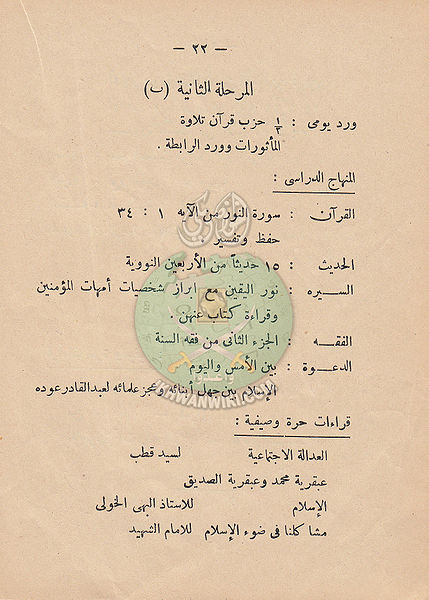 — ٢٢ —
المرحلة الثانية (ب)
ورد يومى : ١/٣ حزب قرآن تلاوة
المأثورات وورد الرابطة .
المنهاج الدراسى :
القرآن : سورة النور من الآيه ١ : ٣٤
حفظ وتفسير .
الحديث : ١٥ حديثاً من الأربعين النووية
السيره : نور اليقين مع ابراز شخصيات أمهات المؤمنين
وقراءة كتاب عنهن .
الفقه : الجزء الثانى من فقه السنة
الدعوة : بين الأمس واليوم
الإسلام بين جهل أبنائه وعجز علمائه لعبد القادر عوده
قراءات حرة وصيفية :
العدالة الاجتماعية لسيد قطب
عبقرية محمد وعبقرية الصديق
الإسلام للاستاذ البهى الخولى
مشاكلنا فى ضوء الإسلام للامام الشهيد
IKHWANWIKI.COM